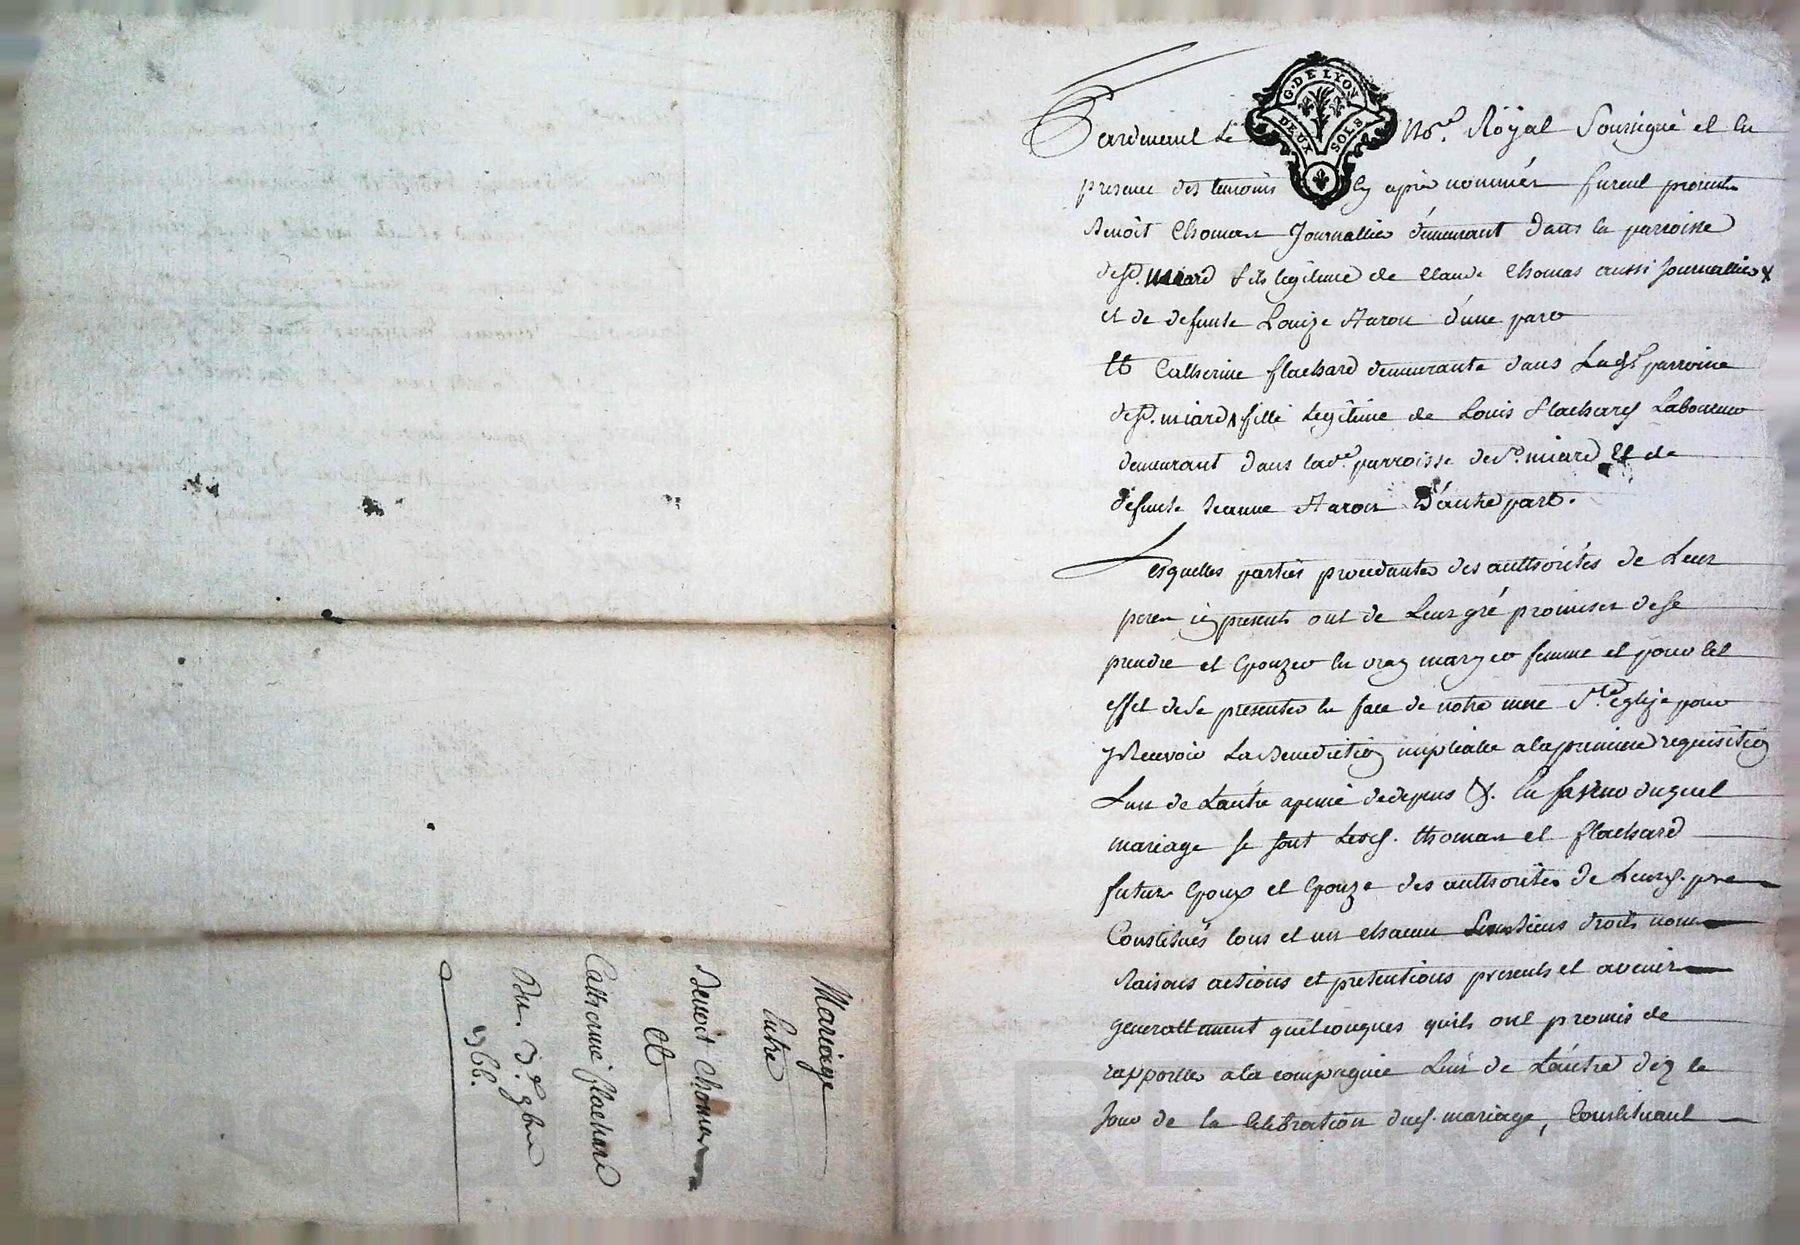 Mariage
Entre
Benoit Thomas
Et
Catherine flachard
Du. 3.e 9bre
G. DE LYON
DEUX SOLS
Pardevant Le No.re Röyal Soussigné et En
presence des temoins Cy après nommés furent presents
Benoit Thomas Journallier demeurant dans la parroisse
de St. miard fils legitime de Claude Thomas aussi Journallier
et de defunte Louize Aaron d'une part
Et Catherine flachard demeurante dans Lad. parroisse
de St. miard fille Legitime de Louis flachard Laboureur
demeurant dans lad.e parroisse de St. miard Et de
défunte Jeanne Aaron D'autre part.
Lesquelles parties procedantes des authorités de Leur
peres icy presents ont de Leur gré promises de se
prendre et Epouzer En vray mary et femme et pour cet
effet de se presenter En face de notre mere S.te église pour
y Recevoir La Benediction nuptialle a la premiere requisition
L'un de L'autre a peine de depens &. En faveur duquel
mariage se sont Lesd. Thomas et flachard
futurs Epoux et Epouze des authorités de Leursd. peres
Constitués tous et un chacun Leurs biens droits noms
Raisons actions et pretentions presents et avenir
generallement quelconques quils ont promis de
rapporter a la compagnie L'un de L'autre dez le
Jour de la Celebration dud. mariage, Constituant